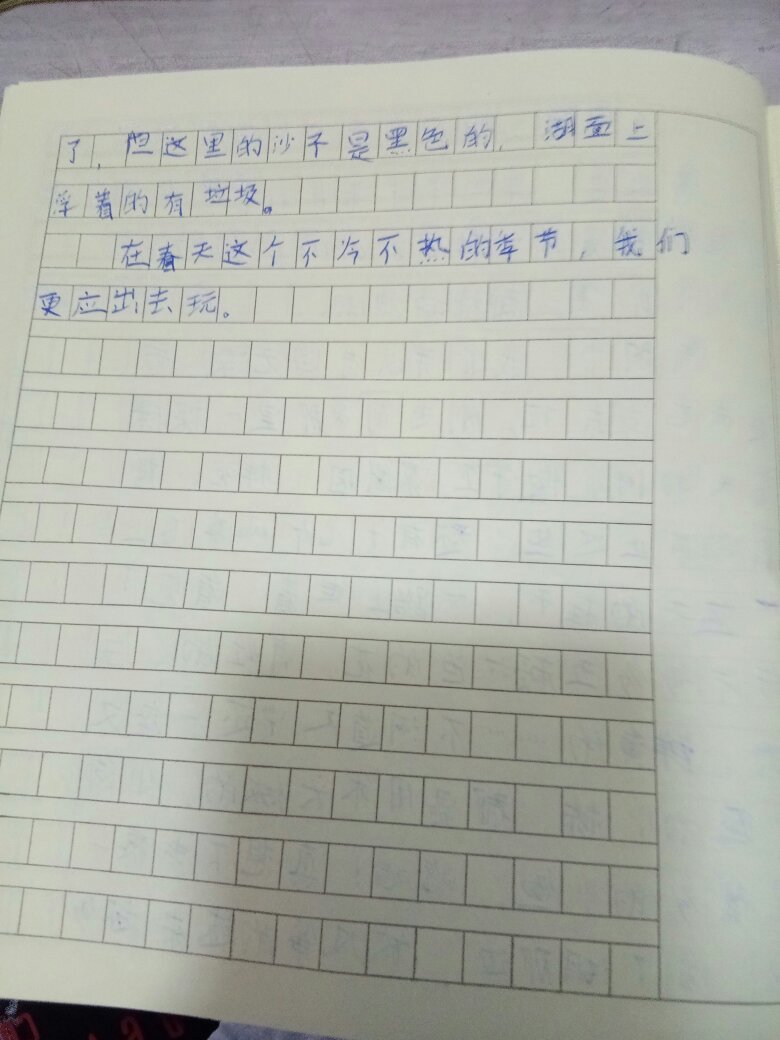 了，但这里的沙不是黑色的，湖面上
浮着的有垃圾。
在春天这个不冷不热的季节，我们
更应出去玩。